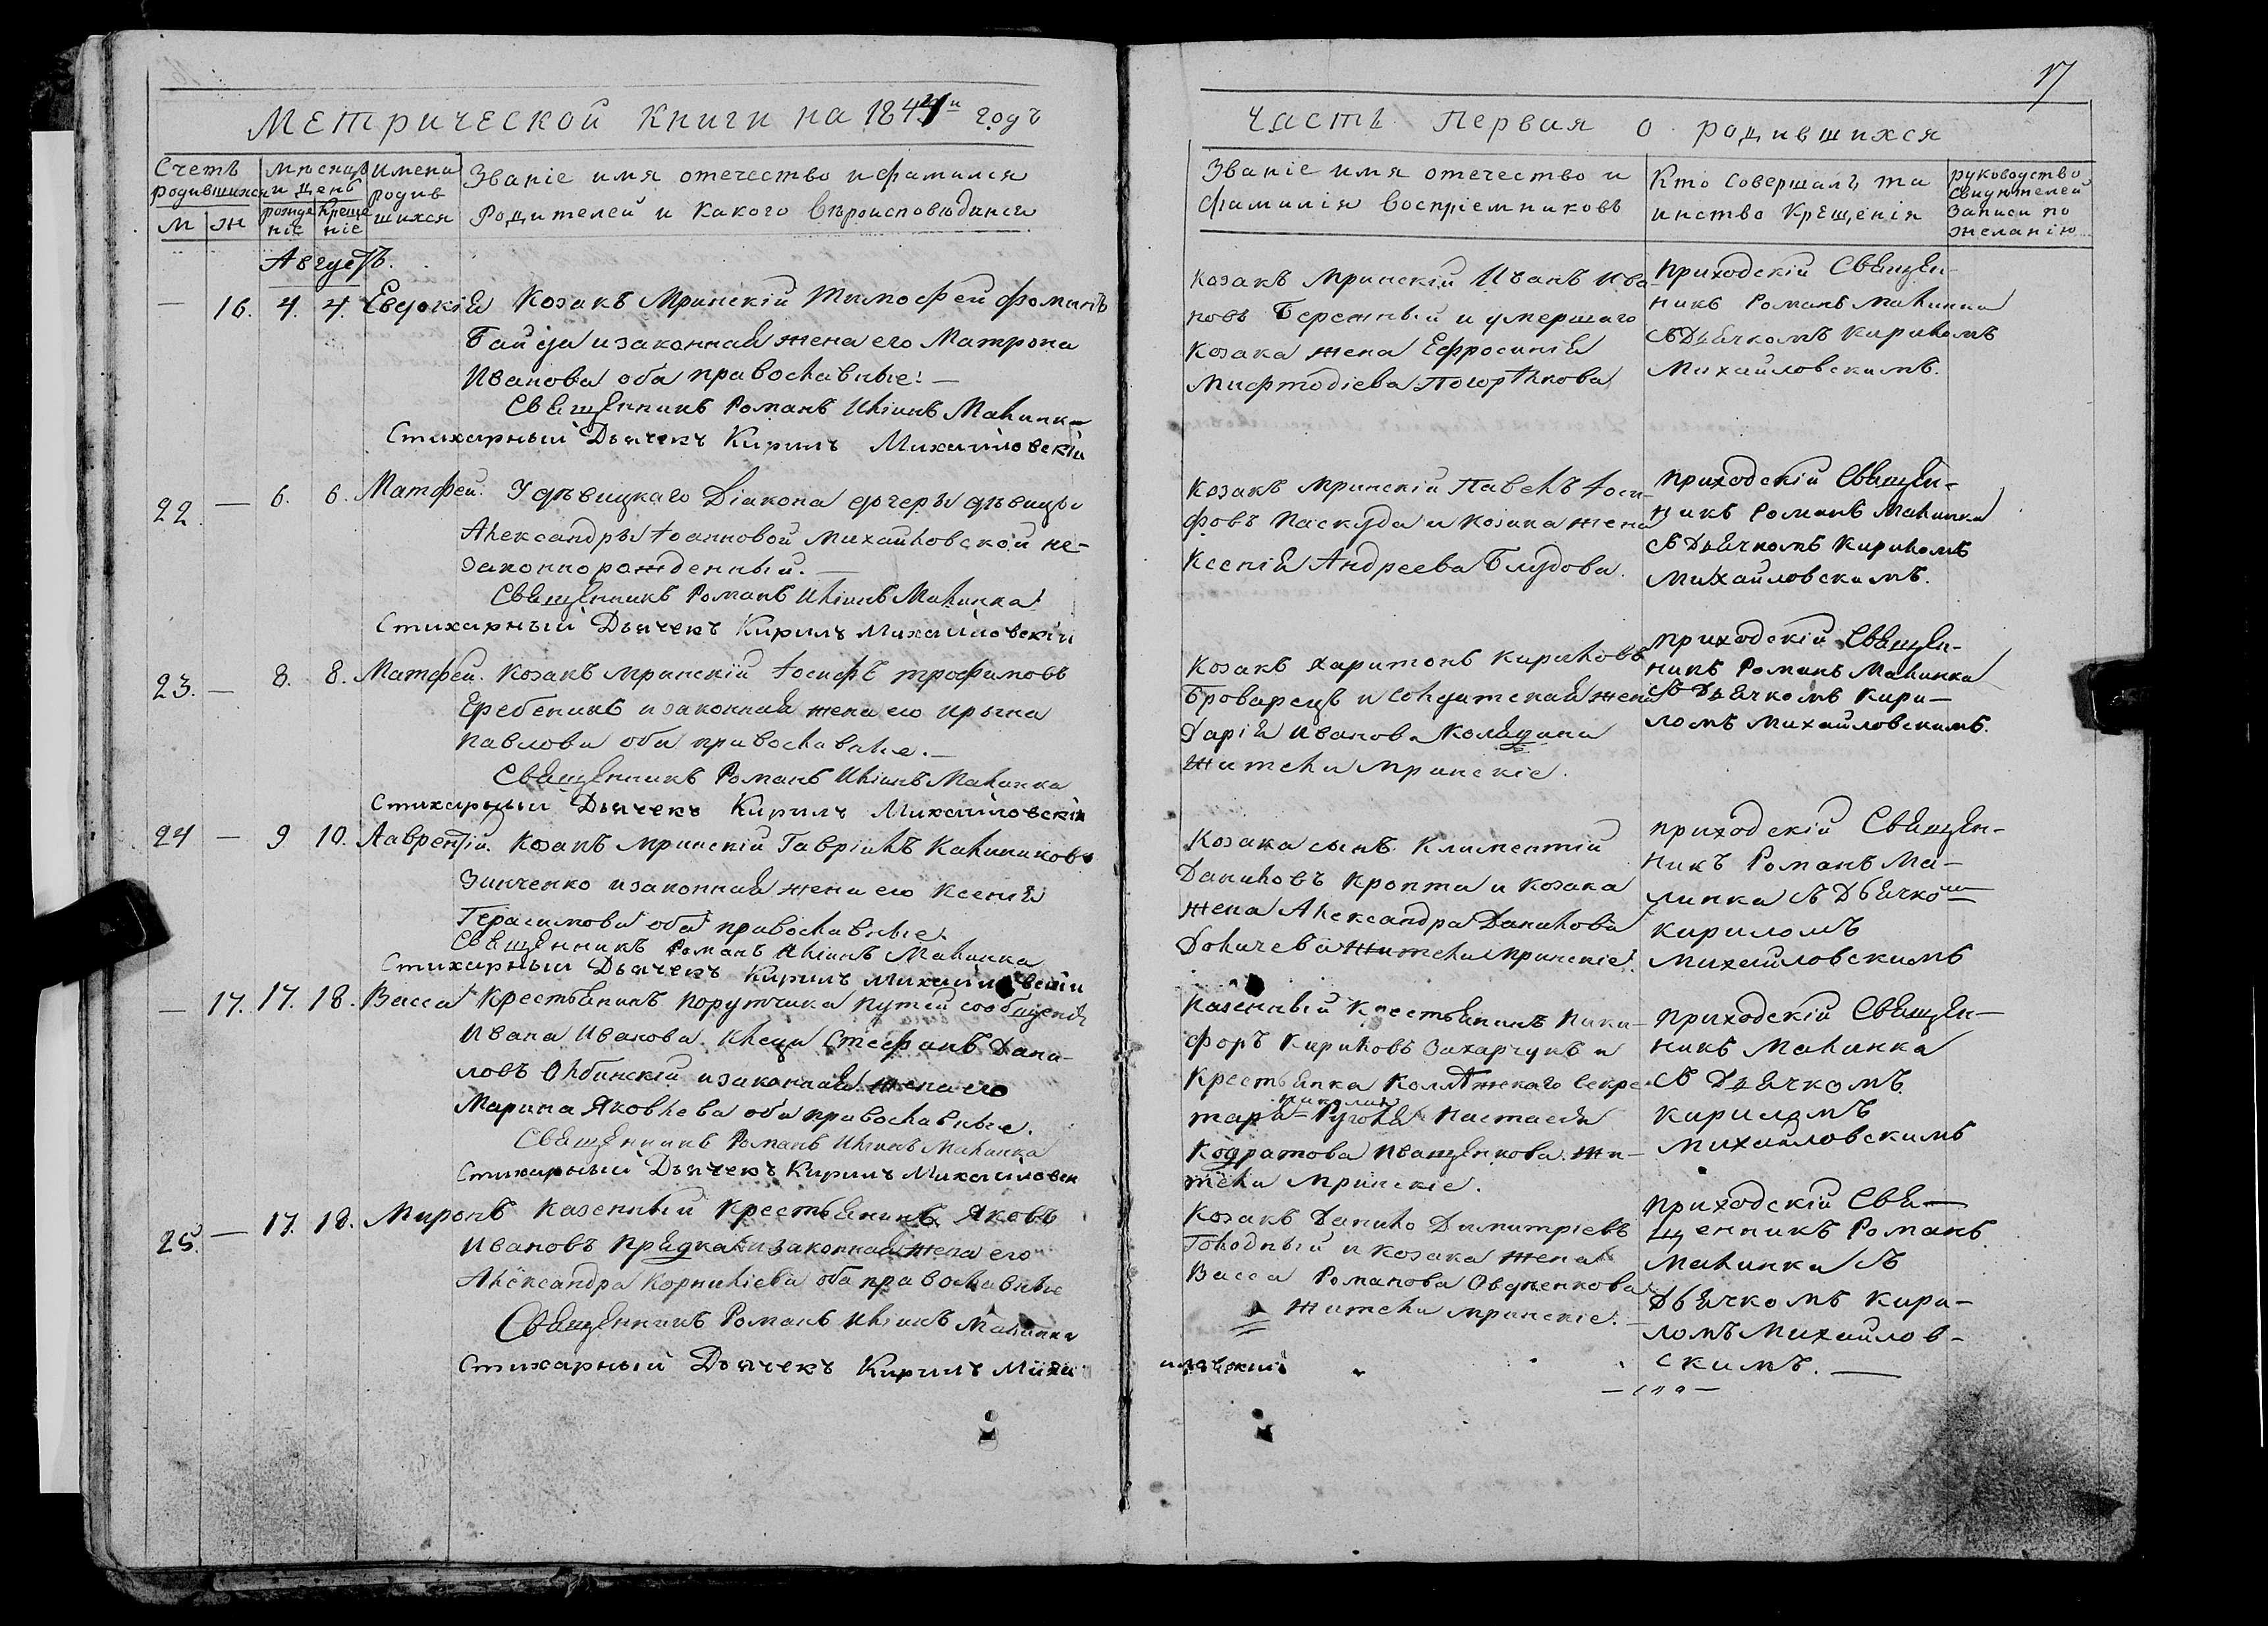 17
Метрической Книги на 1844й годъ
Счетъ родившихся
Мѣсяцъ и день
Имена родившихся
Званіе имя отечество и фамилія
Родителей и Какого Вѣроисповѣданія
м жн
рожденіе Крещеніе
Августъ.
— 16. 4. 4. Евдокія Козакъ Мринскій Тимофей Фоминъ
Байда и законная жена его Матрона
Иванова оба православные. —
Священникъ Романъ Иліинъ Малинка
Стихарный Дьячекъ Кирилъ Михайловскій
22. — 6. 6. Матфей. Удѣвицкаго Діакона дочеръ дѣвицы
Александры Іоанновой Михайловской не-
законнорожденный. —
Священникъ Романъ Иліинъ Малинка
Стихарный Дьячекъ Кирилъ Михайловскій
23. — 8. 8. Матфей. Козакъ Мринскій Іосифъ Трофимовъ
Гребеникъ и законная жена его Ирына
Павлова оба православные. —
Священникъ Романъ Иліинъ Малинка
Стихарный Дьячекъ Кирилъ Михайловскій
24 — 9 10. Лаврентій. Козакъ Мринскій Гавріилъ Калиниковъ
Зинченко и законная жена его Ксенія
Герасимова оба православные.
Священникъ Романъ Иліинъ Малинка
Стихарный Дьячекъ Кирилъ Михайловскій
— 17. 17. 18. Васса Крестьянинъ порутчика путей сообщенія
Ивана Иванова Стефанъ Дани-
ловъ Олбинскій и законная жена его
Марина Яковлева оба православные.
Священникъ Романъ Иліинъ Малинка
Стихарный Дьячекъ Кирилъ Михайловск
25. — 17. 18. Миронъ Казенный Крестьянинъ Яковъ
Ивановъ Прядка и законная жена его
Александра Корниліева оба православные
Священникъ Романъ Иліинъ Малинка
Стихарный Дьячекъ Кирилъ Михайловскій
Часть Первая о родившихся
Званіе имя отечество и
Фамилія Воспріемниковъ
Кто Совершалъ та
инство Крещенія
руководство
свидѣтелей
записи по
желанію
Козакъ Мринскій Иванъ Ива
новъ Бережный и умершаго
Козака жена Ефросинія
Мифтодіева
Приходскій Священ-
никъ Романъ Малинка
съ Дьячкомъ Кириломъ
Михайловскимъ.
Козакъ Мринскій Павелъ Іоси-
фовъ Паскуда и Козака жена
Ксенія Андреева Блудова.
Приходскій Священ-
никъ Романъ Малинка
съ Дьячкомъ Кириломъ
Михайловскимъ.
Козакъ Харитонъ Кириловъ
Броварецъ и Солдатская жена
Дарія Иванова Колядина
жители Мринскіе.
Приходскій Священ-
никъ Романъ Малинка
съ Дьячкомъ Кири-
ломъ Михайловскимъ.
Козака сынъ Климентій
Даниловъ Кропта и Козака
жена Александра Данилова
жители Мринскіе.
Приходскій Священ-
никъ Романъ Ма-
линка съ Дьячкомъ
Кириломъ
Михайловскимъ
Казенный Крестьянинъ Ники-
форъ Кириловъ Захарчукъ и
Крестьянка Коллѣжскаго Секре-
таря Настасія
Кодратова Иващенкова жи-
тели Мринскіе.
Приходскій Священ-
никъ Малинка
съ Дьячкомъ
Кириломъ
Михайловскимъ
Козакъ Данило Димитріевъ
Голодный и Козака жена
Васса Романова Овдіенкова
жители Мринскіе.
Приходскій Свя-
щенникъ Романъ
Малинка съ
Дьячкомъ Кири-
ломъ Михайлов-
скимъ. —